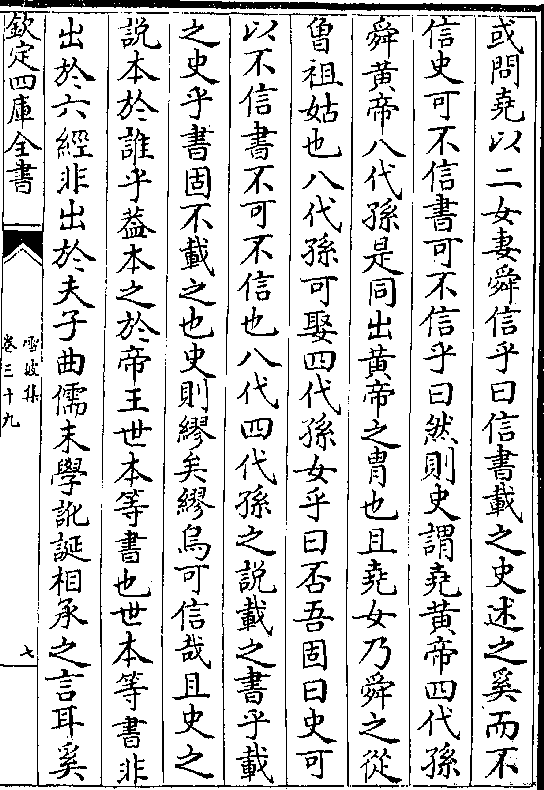 或問堯以二女妻舜信乎曰信書載之史述之奚而不
信史可不信書可不信乎曰然則史謂堯黃帝四代孫
舜黃帝八代孫是同出黃帝之胄也且堯女乃舜之從
曾祖姑也八代孫可娶四代孫女乎曰否吾固曰史可
以不信書不可不信也八代四代孫之說載之書乎載
之史乎書固不載之也史則繆矣繆烏可信哉且史之
說本於誰乎葢本之於帝王世本等書也世本等書非
出於六經非出於夫子曲儒末學訛誕相承之言耳奚
欽定四庫全書
雪坡集
卷三十九
七